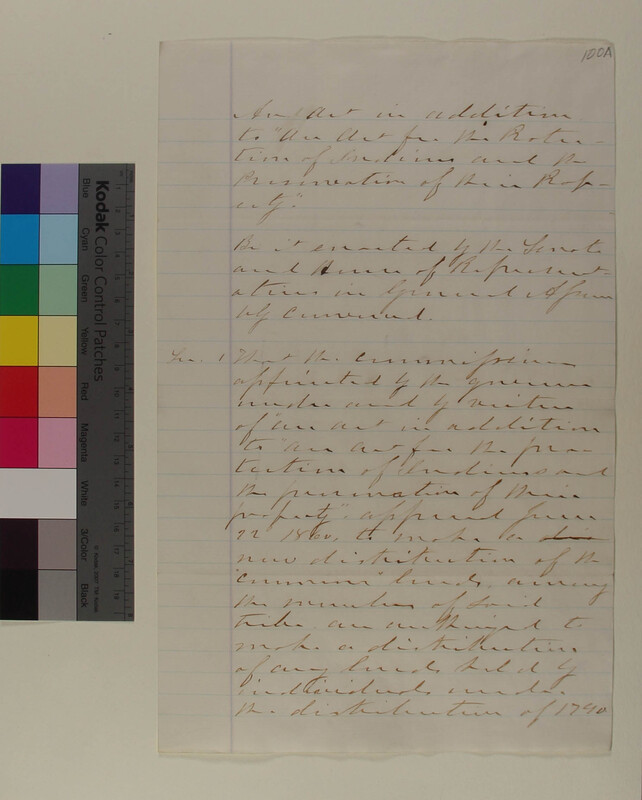 100A
An Act in addition
to "An Act for the Protec-
tion of Indians and the
Preservation of their Prop-
erty".
Be it enacted by the Senate
and House of Represent-
atives in General Assem
bly convened.
Sec. 1 That the commissioners
appointed by the governor
under and by virtue
of "an act in addition
to "an act for the pro-
tection of Indians and
the preservation of their
property" approved June
22 1860, to make a
new distribution of the
"common" lands among
the members of said
tribe are authorized to
make a distribution
of any lands held by
individuals under
the distribution of 1790
Kodak Color Control Patches
Blue
Cyan
Green
Yellow
Red
Magenta
White
3/Color
Black